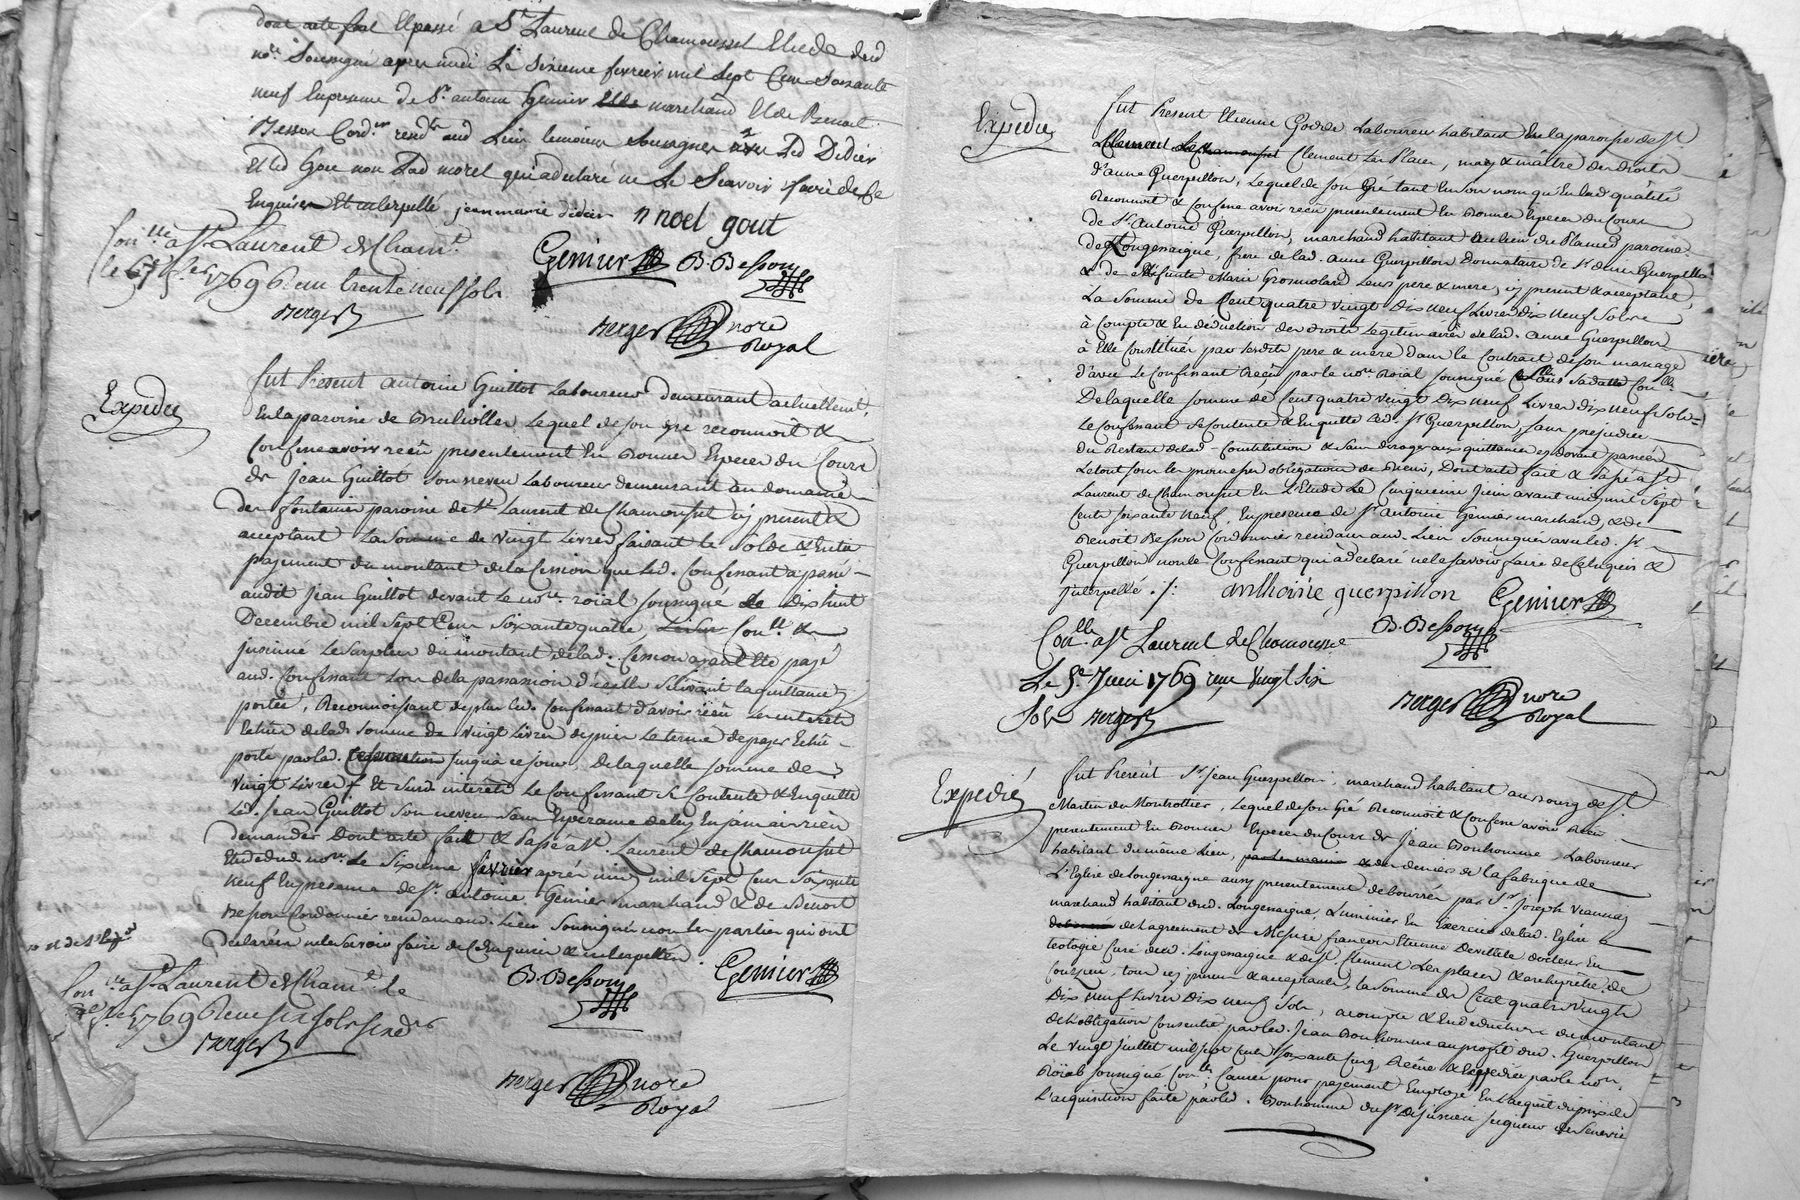 dont acte fait et passé a St. Laurent de Chamousset Etude dud
nore. Soussigné apres midi Le Sixieme fevrier mil Sept Cent Soixante
neuf En presence de Sr. antoine Genier marchand Et de Benoit
Besson Cord.er resid.t aud Lieu temoins Soussignes avec Led Didier
Et led Gout non Lad morel qui a declaré ne Le Scavoir faire de Ce
Enquise Et interpellé jean marie didier n noel gout
Con.lle a St. Laurent de Cham.t
le 6e fer. 1769 Reçu trente neuf sols
Berger
Genier B. Besson
Berger nore
Royal
Expedié
fut Present antoine Guillot Laboureur demeurant actuellement,
En la paroisse de Brulliolles, Lequel de son gré reconnoit &
Confesse avoir reçû presentement En Bonnes Especes du Cours
de Jean Guillot son neveu Laboureur demeurant au domaine
des fontaines paroisse de St. Laurent de Chamousset icy present &
acceptant La Somme de vingt Livres faisant le Solde & Entier
payement du montant de la Cession que Led. Confessant a passé
audit Jean Guillot devant le nore. roïal soussigné Le Dixhuit
Decembre mil Sept Cent Soixante quatre, Con.llé &
Le Surplus du montant de lad. Cession ayant Eté payé
aud. Confessant Lors de la passation d'icelle Suivant la quittance y
portée, Reconnoissant de plus led. Confessant d'avoir reçû Les interêts
de lad. somme de vingt Livres depuis Le terme de payer
porté par lad. Cession jusqu'a ce jour, de laquelle somme de
Vingt Livres Et desd. interêts Le Confessant Se Contente & En quitte
Led. Jean Guillot Son neveu Sans Esperance de luy En jamais rien
demander Dont acte fait & Passé a St. Laurent de Chamousset
Etude dud. nore. Le Sixieme fevrier après midy mil Sept Cent Soixante
neuf En presence de Sr. antoine Genier marchand & de Benoit
Besson Cordonnier residant aud. Lieu Soussignés non les parties qui ont
declaré ne le Savoir faire de Ce Enquises & interpellées
B. Besson Genier
Con.lle a St. Laurent de Cham.t le
fer. 1769 Reçu six sols six drs
Berger
Berger nore
Royal
Expedié
fut Present Etienne Laboureur habitant En la paroisse de St.
Clement Les Places, mary & maître des droits
d'anne Guerpillon, Lequel de son Gré tant En son nom qu'En lad. qualité
Reconnoit & Confesse avoir reçû presentement En Bonnes Especes du Cours
de Sr. Antoine Guerpillon, marchand habitant au Lieu du paroisse
de Longesaigne, frere de lad. Anne Guerpillon Donnataire de Sr. Guerpillon
& de deffunte Marie Leurs pere & mere, icy present & acceptant,
La Somme de Cent quatre vingt Dix neuf Livres Dix Neuf Sols
à Compte & En déduction des droits Legitimaires de lad. anne Guerpillon
à Elle Constitués par sesdits pere & mere dans le Contrat de son mariage
d'avec Le Confessant Reçû par le nore. Roïal soussigné sa datte Con.llé
De laquelle somme de Cent quatre vingt Dix neuf Livres Dix neuf Sols
Le Confessant Se Contente & En quitte led. Sr. Guerpillon, sans prejudice
du Restant de lad. Constitution & sans deroger aux quittances cy devant passées
Le tout sous les promesses obligations de Biens, Dont acte fait & Passé a St.
Laurent de Chamousset En L'Etude Le Cinquieme Juin avant midy mil Sept
Cent soixante Neuf, En presence de Sr. Antoine Genier marchand, & de
Benoit Besson Cordonnier residants aud. Lieu Soussignés avec led. Sr.
Guerpillon non le Confessant qui a declaré ne le savoir faire de Ce Enquis &
jnterpellé ./. anthoine guerpillon Genier
B. Besson
Con.lle a St. Laurent de Chamousset
Le 5e. Juin 1769 reçu vingt six
Sols Berger
Berger nore
Royal
Expedié
fut Present Sr. Jean Guerpillon, marchand habitant au bourg de St.
Martin de Montrottier, Lequel de son Gré Reconnoit & Confesse avoir Reçu
presentement En Bonnes Especes du Cours de Jean Bonhomme Laboureur
habitant du même Lieu, des deniers de la fabrique de
L'Eglise de Longesaigne aussy presentement deboursés par Sr. Joseph
marchand habitant dud. Longesaigne, Luminier En Exercice de lad. Eglise &
de L'agrement de Messire françois Etienne Docteur En
teologie Curé dud. Longesaigne & de St. Clement Les places & archiprêtre de
Courzieu, tous icy presents & acceptants, la Somme de Cent quatre vingt
Dix Neuf Livres Dix neuf Sols, a compte & En deduction du montant
de L'obligation Consentie par led. Jean Bonhomme au profit dud. Guerpillon
Le vingt juillet mil sept Cent soixante Cinq Reçue & Expediée par le nore.
Roïal soussigné Con.llé, Causée pour payement Employé En L'acquit du prix de
L'acquisition faite par led. Bonhomme du Sr. seigneur de